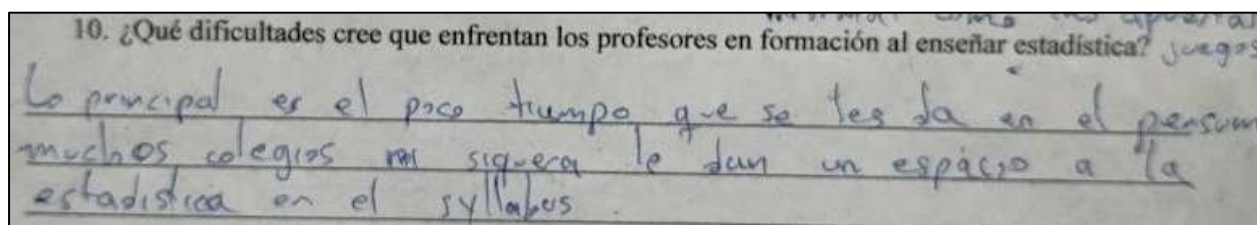 como los apuestas
10. ¿Qué dificultades cree que enfrentan los profesores en formación al enseñar estadística? juegos
Lo principal es el poco tiempo que se les da en el pensum
muchos colegios ni siquera le dan un espacio a la
estadistica en el syllabus.